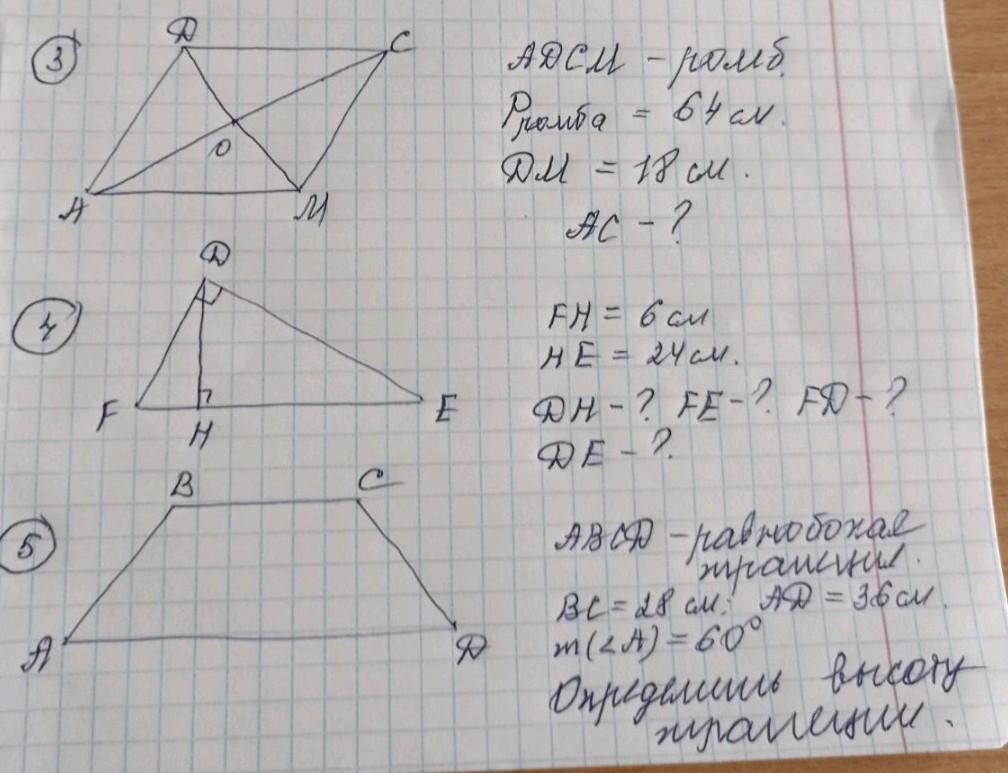 3
D
C
O
A
M
ADCM - ромб.
Pромба = 64 см.
DM = 18 см.
AC - ?
4
D
F
H
E
FH = 6 см
HE = 24 см.
DH - ? FE - ? FD - ?
DE - ?
5
B
C
A
D
ABCD - равнобокая
трапеция.
BC = 28 см. AD = 36 см.
m(<A) = 60°
Определить высоту
трапеции.